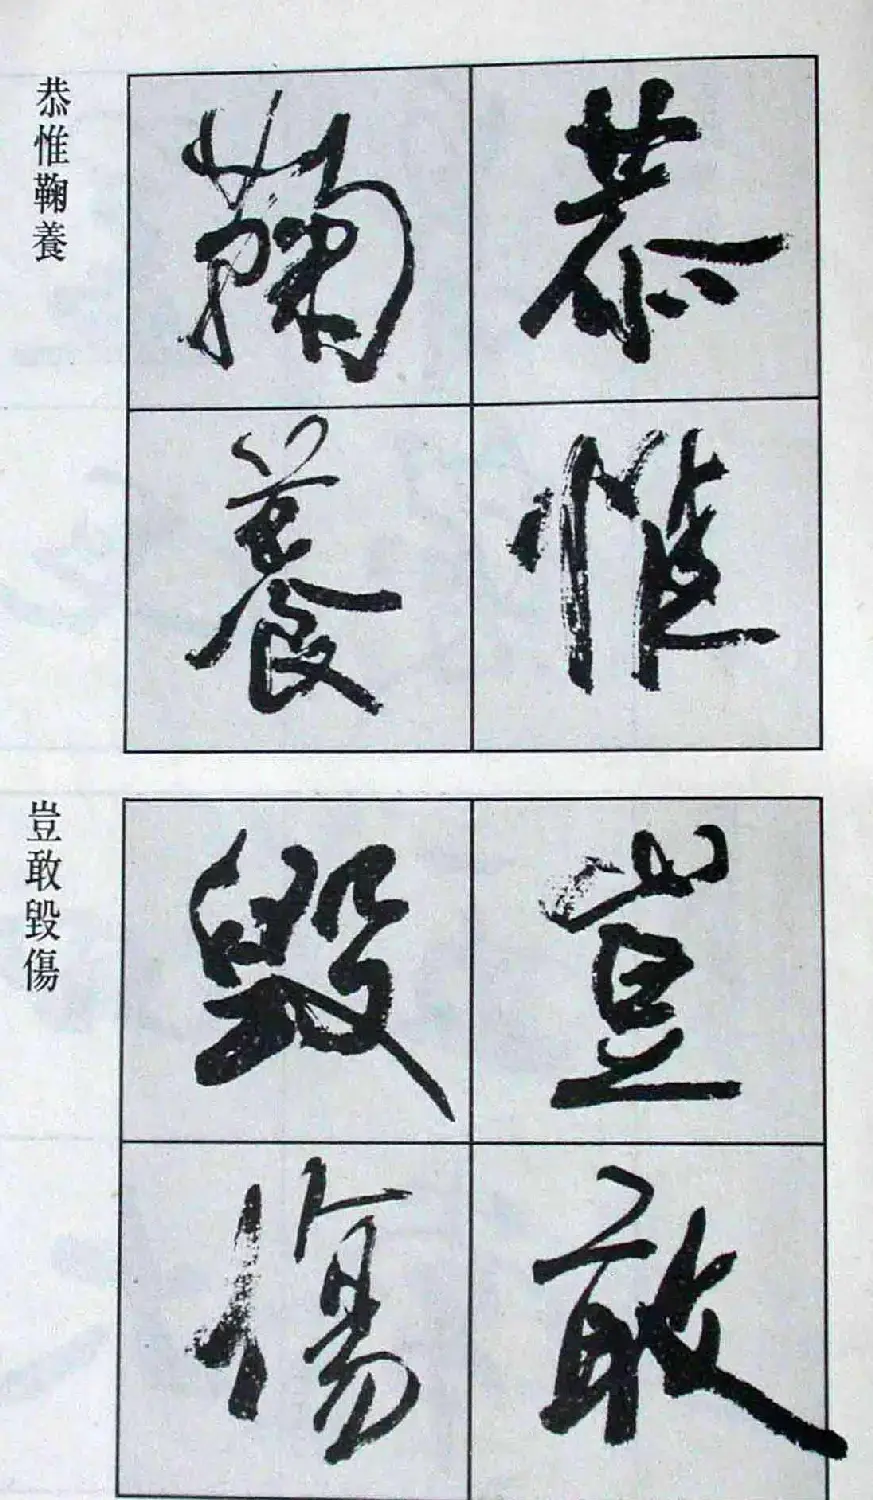 恭惟
鞠養
恭惟鞠養
豈敢
毀傷
豈敢毀傷